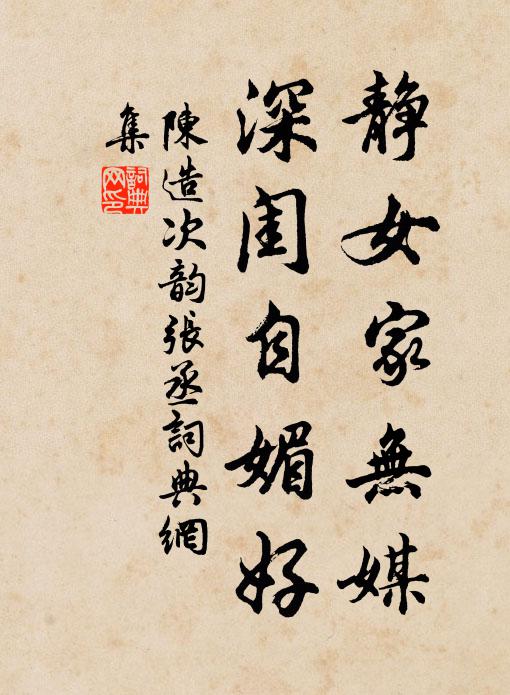 静女家無媒
深闺自媚好
陳造次韵張丞詞典網
集
詞典
网印